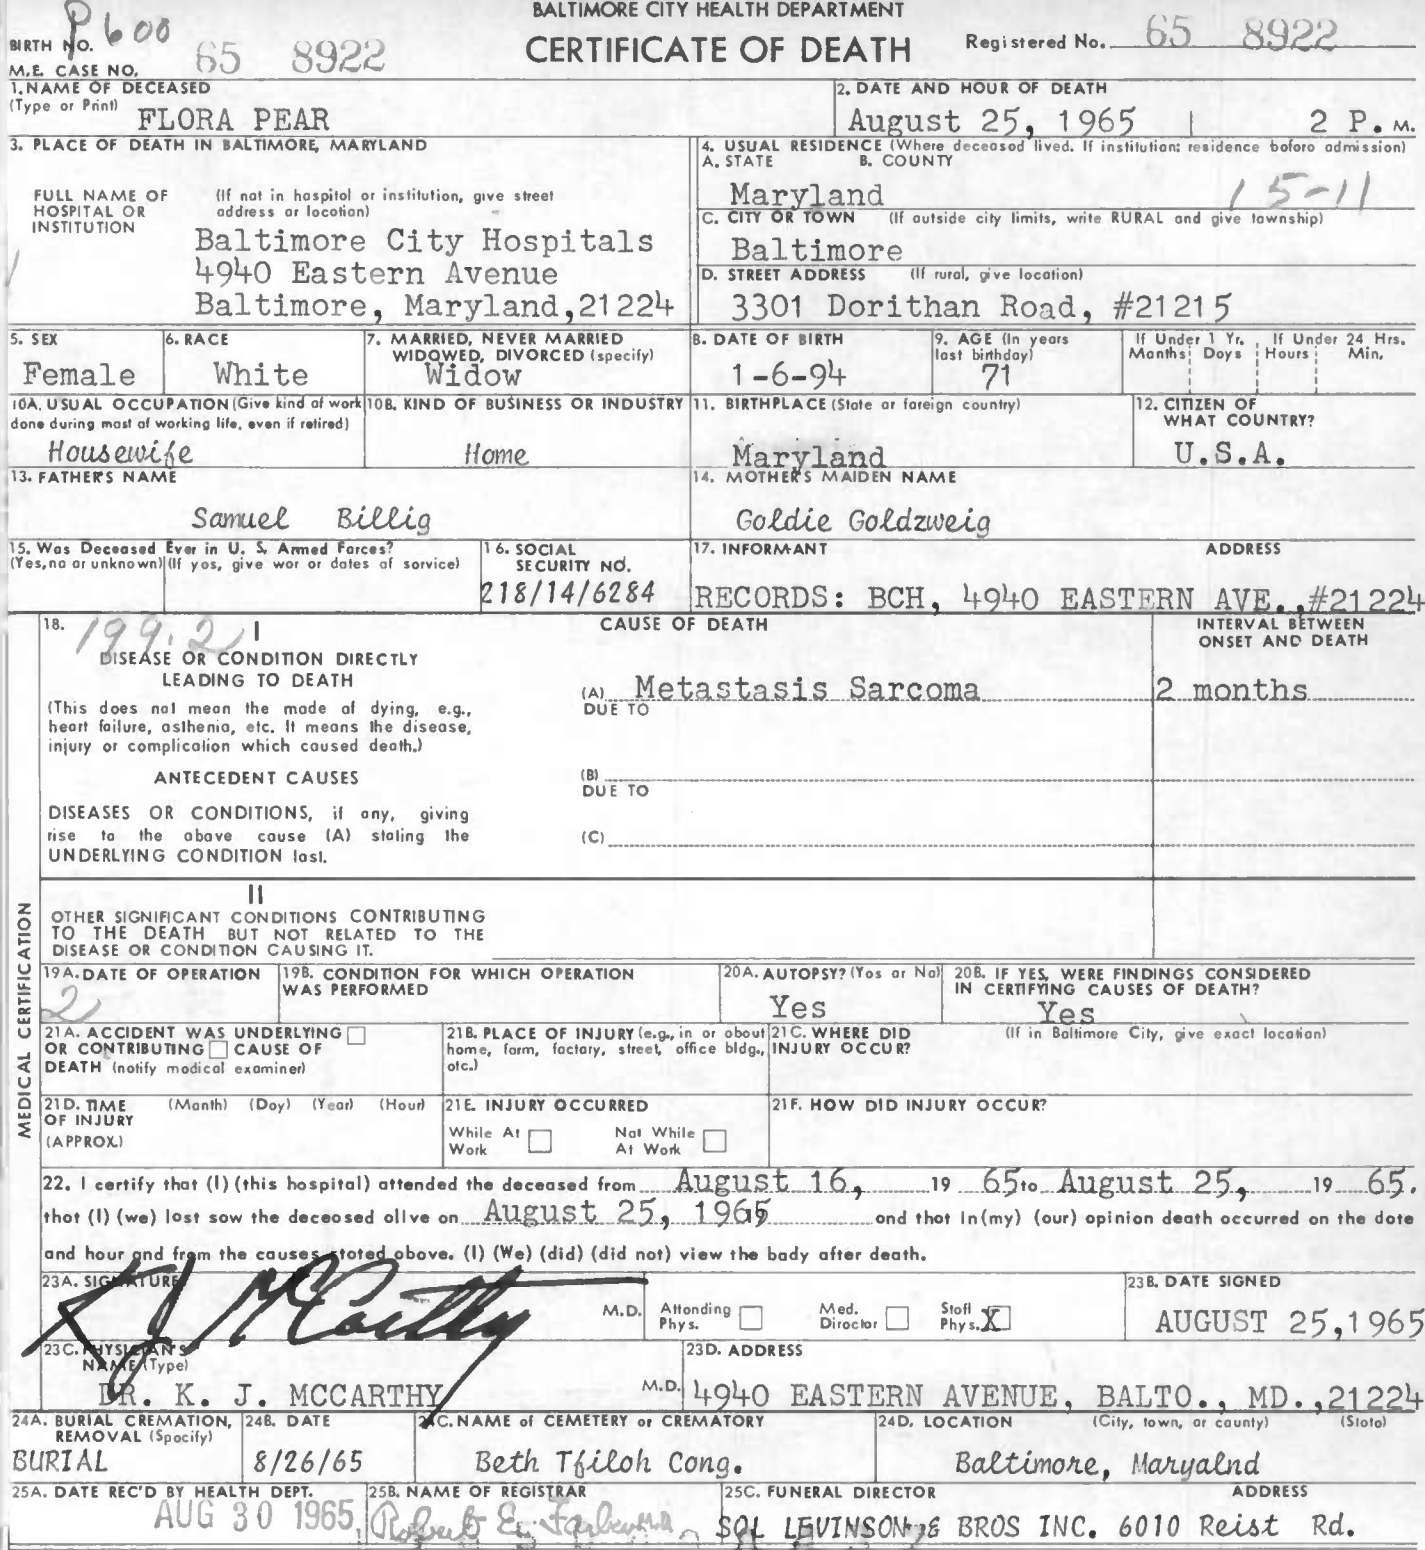 P600
BALTIMORE CITY HEALTH DEPARTMENT
BIRTH NO. 65 8922
CERTIFICATE OF DEATH
Registered No. 65 8922
M.E. CASE NO.
1. NAME OF DECEASED
(Type or Print) FLORA PEAR
2. DATE AND HOUR OF DEATH
August 25, 1965 | 2 P. M.
3. PLACE OF DEATH IN BALTIMORE, MARYLAND
FULL NAME OF HOSPITAL OR INSTITUTION
(If not in hospital or institution, give street address or location)
Baltimore City Hospitals
4940 Eastern Avenue
Baltimore, Maryland,21224
4. USUAL RESIDENCE (Where deceased lived. If institution: residence before admission)
A. STATE B. COUNTY
Maryland 15-11
C. CITY OR TOWN (If outside city limits, write RURAL and give township)
Baltimore
D. STREET ADDRESS (If rural, give location)
3301 Dorithan Road, #21215
5. SEX
Female
6. RACE
White
7. MARRIED, NEVER MARRIED
WIDOWED, DIVORCED (specify)
Widow
8. DATE OF BIRTH
1-6-94
9. AGE (In years last birthday)
71
If Under 1 Yr. If Under 24 Hrs.
Months Days Hours Min.
10A. USUAL OCCUPATION (Give kind of work done during most of working life, even if retired)
Housewife
10B. KIND OF BUSINESS OR INDUSTRY
Home
11. BIRTHPLACE (State or foreign country)
Maryland
12. CITIZEN OF WHAT COUNTRY?
U.S.A.
13. FATHER'S NAME
Samuel Billig
14. MOTHER'S MAIDEN NAME
Goldie Goldzweig
15. Was Deceased Ever in U. S. Armed Forces?
(Yes, no or unknown) (If yes, give war or dates of service)
16. SOCIAL SECURITY NO.
218/14/6284
17. INFORMANT ADDRESS
RECORDS: BCH, 4940 EASTERN AVE.,#21224
18. 199.2 I
DISEASE OR CONDITION DIRECTLY LEADING TO DEATH
(This does not mean the mode of dying, e.g., heart failure, asthenia, etc. It means the disease, injury or complication which caused death.)
ANTECEDENT CAUSES
DISEASES OR CONDITIONS, if any, giving rise to the above cause (A) stating the UNDERLYING CONDITION last.
CAUSE OF DEATH
INTERVAL BETWEEN ONSET AND DEATH
(A) Metastasis Sarcoma 2 months
DUE TO
(B)
DUE TO
(C)
II
OTHER SIGNIFICANT CONDITIONS CONTRIBUTING TO THE DEATH BUT NOT RELATED TO THE DISEASE OR CONDITION CAUSING IT.
MEDICAL CERTIFICATION
19A. DATE OF OPERATION
2
19B. CONDITION FOR WHICH OPERATION WAS PERFORMED
20A. AUTOPSY? (Yes or No)
Yes
20B. IF YES, WERE FINDINGS CONSIDERED IN CERTIFYING CAUSES OF DEATH?
Yes
21A. ACCIDENT WAS UNDERLYING
OR CONTRIBUTING CAUSE OF
DEATH (notify medical examiner)
21B. PLACE OF INJURY (e.g., in or about home, farm, factory, street, office bldg., etc.)
21C. WHERE DID INJURY OCCUR?
(If in Baltimore City, give exact location)
21D. TIME OF INJURY (APPROX.)
(Month) (Day) (Year) (Hour)
21E. INJURY OCCURRED
While At Work Not While At Work
21F. HOW DID INJURY OCCUR?
22. I certify that (I) (this hospital) attended the deceased from August 16, 19 65 to August 25, 19 65.
that (I) (we) last saw the deceased alive on August 25, 1965 and that in (my) (our) opinion death occurred on the date
and hour and from the causes stated above. (I) (We) (did) (did not) view the body after death.
23A. SIGNATURE
K J McCarthy
M.D.
Attending Phys. Med. Director Staff Phys. X
23B. DATE SIGNED
AUGUST 25,1965
23C. PHYSICIAN'S NAME (Type)
DR. K. J. MCCARTHY M.D.
23D. ADDRESS
4940 EASTERN AVENUE, BALTO., MD.,21224
24A. BURIAL CREMATION, REMOVAL (Specify)
BURIAL
24B. DATE
8/26/65
24C. NAME of CEMETERY or CREMATORY
Beth Tfiloh Cong.
24D. LOCATION (City, town, or county) (State)
Baltimore, Maryalnd
25A. DATE REC'D BY HEALTH DEPT.
AUG 30 1965
25B. NAME OF REGISTRAR
Robert E. Farber M.D.
25C. FUNERAL DIRECTOR ADDRESS
SOL LEVINSON & BROS INC. 6010 Reist Rd.